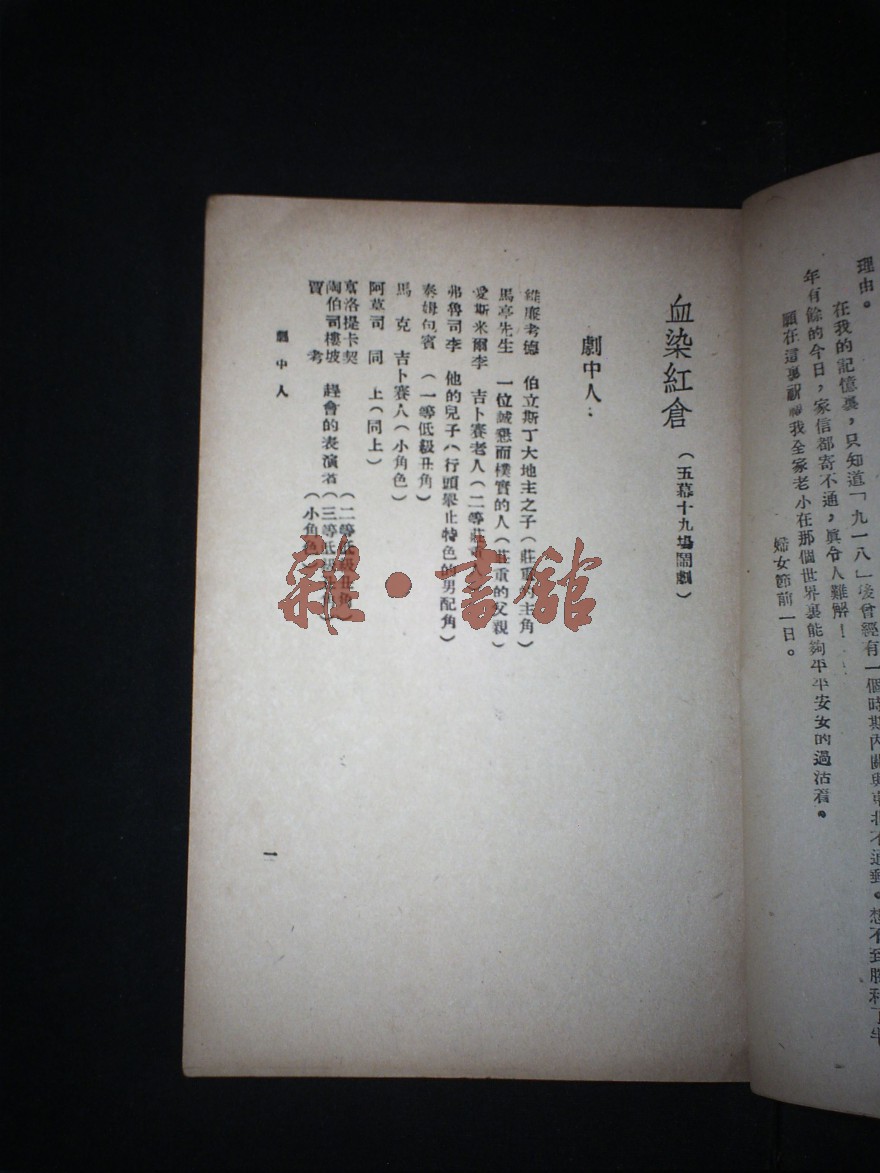 理由。
在我的記憶裏,只知道「九一八」後曾經有一個時期內關與東北不通郵。想不到勝利了半
年有餘的今日,家信都寄不通,眞令人難解!
願在這裏祈禱我全家老小在那個世界裏能夠平平安安的過活着。
婦女節前一日。
血染紅倉 (五幕十九場鬧劇)
劇中人:
維廉考德 伯立斯丁大地主之子(莊重的主角)
馬亭先生 一位誠懇而樸實的人(莊重的父親)
愛斯米爾李 吉卜賽老人(二等莊重人)
弗魯司李 他的兒子(行頭舉止特色的男配角)
泰姆包賓 (一等低級丑角)
馬克 吉卜賽人(小角色)
阿莫司 同上(同上)
富洛提卡契 (二等低級丑角)
陶伯司樓坡 趕會的表演者 (三等低級丑角)
賈考 (小角色)
劇中人
一
雜·書舘